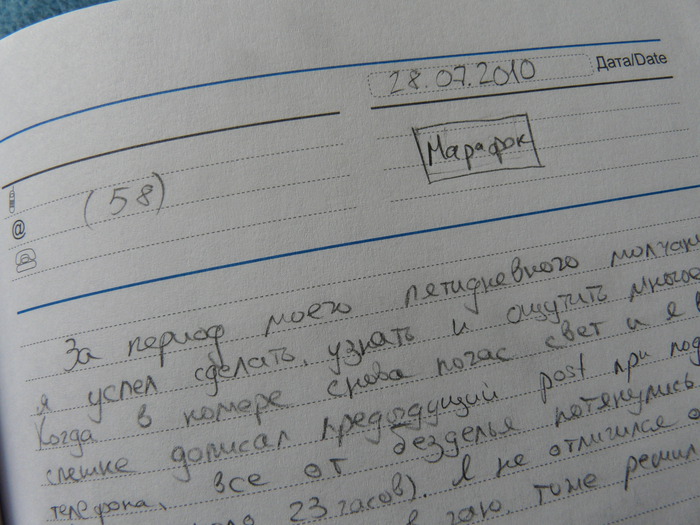 28.07.2010 Дата/Date
Марафон
@ (58)
За период моего пятидневного молчан
я успел сделать, узнать и ощутить многое
Когда в номере снова погас свет и я в
спешке дописал предыдущий post при под
телефона, все от безделья потянулись
23 часов). Я не отличился о
тоже решил